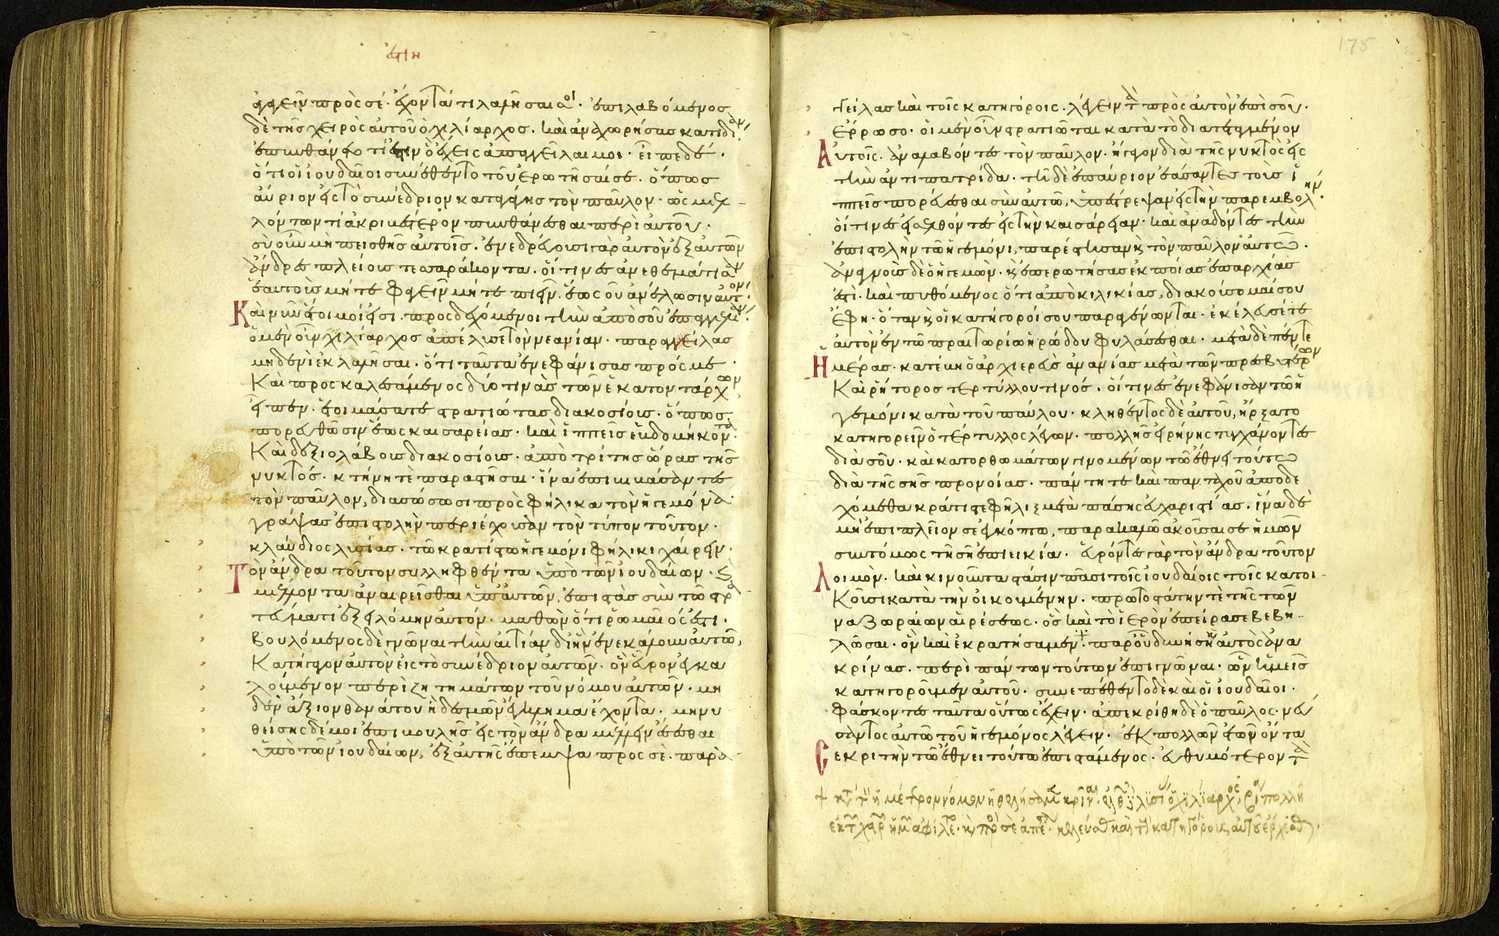 ἀγαγεῖν πρὸς σέ· ἔχοντά τι λαλῆσαί σοι· ἐπιλαβόμενος
δὲ τῆς χειρὸς αὐτοῦ ὁ χιλίαρχος· καὶ ἀναχωρήσας κατιδίαν
ἐπυνθάνετο τί ἐστιν ὃ ἔχεις ἀπαγγεῖλαι μοι· εἶπε δέ·
ὅτι οἱ ἰουδαῖοι συνέθεντο τοῦ ἐρωτῆσαί σε· ὅπως
αὔριον εἰς τὸ συνέδριον καταγάγῃς τὸν παῦλον· ὡς μέλ
λοντων τί ἀκριβέστερον πυνθάνεσθαι περὶ αὐτοῦ·
σὺ οὖν μὴ πεισθῇς αὐτοῖς· ἐνεδρεύουσι γὰρ αὐτὸν ἐξ αὐτῶν
ἄνδρες πλείους τεσσαράκοντα· οἵτινες ἀνεθεμάτισαν
ἑαυτοὺς μήτε φαγεῖν μήτε πιεῖν· ἕως οὗ ἀνέλωσιν αὐτόν·
Καὶ νῦν ἕτοιμοί εἰσι· προσδεχόμενοι τὴν ἀπὸ σοῦ ἐπαγγελίαν·
ὁ μὲν οὖν χιλίαρχος ἀπέλυσε τὸν νεανίαν· παραγγείλας
μηδενὶ ἐκλαλῆσαι· ὅτι ταῦτα ἐνεφάνισας πρός με·
Καὶ προσκαλεσάμενος δύο τινὰς τῶν ἑκατοντάρχων
εἶπεν· ἑτοιμάσατε στρατιώτας διακοσίους· ὅπως
πορευθῶσιν ἕως καισαρείας· καὶ ἱππεῖς ἑβδομήκοντα·
Καὶ δεξιολάβους διακοσίους· ἀπὸ τρίτης ὥρας τῆς
νυκτός· κτήνη τε παραστῆσαι· ἵνα ἐπιβιβάσαντες
τὸν παῦλον, διασώσωσι πρὸς φήλικα τὸν ἡγεμόνα·
γράψας ἐπιστολὴν περιέχουσαν τὸν τύπον τοῦτον·
κλαύδιος λυσίας· τῷ κρατίστῳ ἡγεμόνι φήλικι χαίρειν·
Τὸν ἄνδρα τοῦτον συλληφθέντα ὑπὸ τῶν ἰουδαίων· καὶ
μέλλοντα ἀναιρεῖσθαι ὑπ' αὐτῶν, ἐπιστὰς σὺν τῷ στρα
τεύματι ἐξειλόμην αὐτόν· μαθὼν ὅτι ῥωμαῖός ἐστι·
βουλόμενος δὲ γνῶναι τὴν αἰτίαν δι' ἣν ἐνεκάλουν αὐτῷ,
Κατήγαγον αὐτὸν εἰς τὸ συνέδριον αὐτῶν· ὃν εὗρον ἐγκα
λούμενον περὶ ζητημάτων τοῦ νόμου αὐτῶν· μη
δὲν ἄξιον θανάτου ἢ δεσμῶν ἔγκλημα ἔχοντα· μηνυ
θείσης δέ μοι ἐπιβουλῆς εἰς τὸν ἄνδρα μέλλειν ἔσεσθαι
ὑπὸ τῶν ἰουδαίων, ἐξαυτῆς ἔπεμψα πρὸς σὲ· παραγ
175
γείλας καὶ τοῖς κατηγόροις· λέγειν τὰ πρὸς αὐτὸν ἐπὶ σοῦ·
ἔρρωσο· οἱ μὲν οὖν στρατιῶται κατὰ τὸ διατεταγμένον
Αὐτοῖς· ἀναλαβόντες τὸν παῦλον· ἤγαγον διὰ τῆς νυκτὸς εἰς
τὴν ἀντιπατρίδα· τῇ δὲ ἐπαύριον ἐάσαντες τοὺς ἱ
ππεῖς πορεύεσθαι σὺν αὐτῷ, ὑπέστρεψαν εἰς τὴν παρεμβολήν·
οἵτινες εἰσελθόντες εἰς τὴν καισάρειαν· καὶ ἀναδόντες τὴν
ἐπιστολὴν τῷ ἡγεμόνι, παρέστησαν καὶ τὸν παῦλον αὐτῷ·
ἀναγνοὺς δὲ ὁ ἡγεμὼν· καὶ ἐπερωτήσας ἐκ ποίας ἐπαρχίας
ἐστί· καὶ πυθόμενος ὅτι ἀπὸ κιλικίας, διακούσομαί σου
ἔφη· ὅταν καὶ οἱ κατήγοροί σου παραγένωνται· ἐκέλευσέ τε
αὐτὸν ἐν τῷ πραιτωρίῳ ἡρώδου φυλάσσεσθαι· μετὰ δὲ πέντε
Ἡμέρας· κατέβη ὁ ἀρχιερεὺς ἀνανίας μετὰ τῶν πρεσβυτέρων
Καὶ ῥήτορος τερτύλλου τινός· οἵτινες ἐνεφάνισαν τῷ ἡ
γεμόνι κατὰ τοῦ παύλου· κληθέντος δὲ αὐτοῦ, ἤρξατο
κατηγορεῖν ὁ τέρτυλλος λέγων· πολλῆς εἰρήνης τυγχάνοντες
διὰ σοῦ· καὶ κατορθωμάτων γινομένων τῷ ἔθνει τούτῳ
διὰ τῆς σῆς προνοίας· πάντη τε καὶ πανταχοῦ ἀποδε
χόμεθα κράτιστε φῆλιξ μετὰ πάσης εὐχαριστίας· ἵνα δὲ
μὴ ἐπιπλεῖον σε ἐγκόπτω, παρακαλῶ ἀκοῦσαί σε ἡμῶν
συντόμως τῇ σῇ ἐπιεικίᾳ· εὑρόντες γὰρ τὸν ἄνδρα τοῦτον
Λοιμὸν· καὶ κινοῦντα στάσιν πᾶσι τοῖς ἰουδαίοις τοῖς κατοι
Κοῦσι κατὰ τὴν οἰκουμένην· πρωτοστάτην τε τῆς τῶν
ναζωραίων αἱρέσεως· ὃς καὶ τὸ ἱερὸν ἐπείρασε βεβη
λῶσαι· ὃν καὶ ἐκρατήσαμεν· παρ' οὗ δυνήσῃ αὐτὸς ἀνα
κρίνας· περὶ πάντων τούτων ἐπιγνῶναι· ὧν ἡμεῖς
κατηγοροῦμεν αὐτοῦ· συνεπέθεντο δὲ καὶ οἱ ἰουδαῖοι·
φάσκοντες ταῦτα οὕτως ἔχειν· ἀπεκρίθη δὲ ὁ παῦλος· νεύ
σαντος αὐτῷ τοῦ ἡγεμόνος λέγειν· ἐκ πολλῶν ἐτῶν ὄντα
Σε κριτὴν τῷ ἔθνει τούτῳ ἐπιστάμενος· εὐθυμότερον τὰ